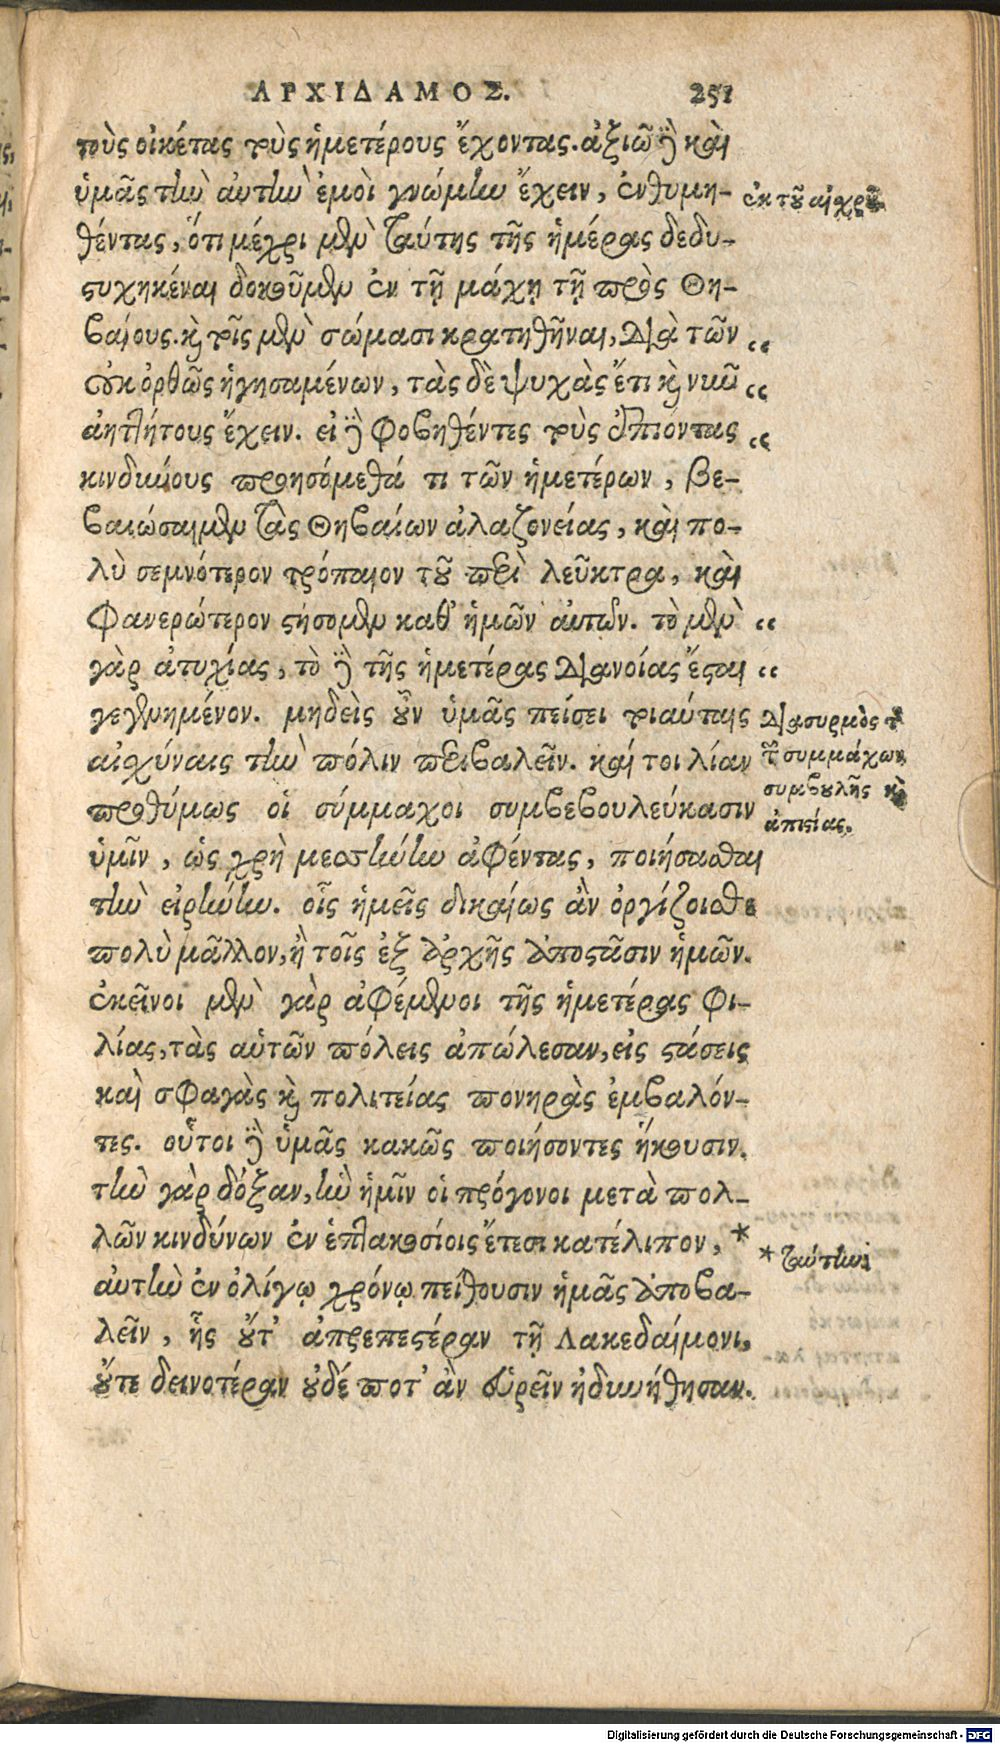 ΑΡΧΙΔΑΜΟΣ. 251
τοὺς οἰκέτας τοὺς ἡμετέρους ἔχοντας. ἀξιῶ δὲ καὶ
ὑμᾶς τὴν αὐτὴν ἐμοὶ γνώμην ἔχειν, ἐνθυμη-
θέντας, ὅτι μέχρι μὲν ταύτης τῆς ἡμέρας δεδυ-
στυχηκέναι δοκοῦμεν ἐν τῇ μάχῃ τῇ πρὸς Θη-
βαίους. καὶ τοῖς μὲν σώμασι κρατηθῆναι, διὰ τῶν
οὐκ ὀρθῶς ἡγησαμένων, τὰς δὲ ψυχὰς ἔτι καὶ νῦν
ἀηττήτους ἔχειν. εἰ δὲ φοβηθέντες τοὺς ἐπιόντας
κινδύνους προησόμεθά τι τῶν ἡμετέρων, βε-
βαιώσαιμεν τὰς Θηβαίων ἀλαζονείας, καὶ πο-
λὺ σεμνότερον τρόπαιον τοῦ περὶ λεῦκτρα, καὶ
φανερώτερον στήσομεν καθ' ἡμῶν αὐτῶν. τὸ μὲν
γὰρ ἀτυχίας, τὸ δὲ τῆς ἡμετέρας διανοίας ἔσται
γεγενημένον. μηδεὶς οὖν ὑμᾶς πείσει τοιαύταις
αἰσχύναις τὴν πόλιν περιβαλεῖν. καί τοι λίαν
προθύμως οἱ σύμμαχοι συμβεβουλεύκασιν
ὑμῖν, ὡς χρὴ μεσσήνην ἀφέντας, ποιήσασθαι
τὴν εἰρήνην. οἷς ἡμεῖς δικαίως ἂν ὀργίζοισθε
πολὺ μᾶλλον, ἢ τοῖς ἐξ ἀρχῆς ἀποστᾶσιν ἡμῶν.
ἐκεῖνοι μὲν γὰρ ἀφέμενοι τῆς ἡμετέρας φι-
λίας, τὰς αὑτῶν πόλεις ἀπώλεσαν, εἰς στάσεις
καὶ σφαγὰς καὶ πολιτείας πονηρὰς ἐμβαλόν-
τες. οὗτοι δὲ ὑμᾶς κακῶς ποιήσοντες ἥκουσιν.
τὴν γὰρ δόξαν, ἣν ἡμῖν οἱ πρόγονοι μετὰ πολ-
λῶν κινδύνων ἐν ἑπτακοσίοις ἔτεσι κατέλιπον, *
αὐτὴν ἐν ὀλίγῳ χρόνῳ πείθουσιν ἡμᾶς ἀποβα-
λεῖν, ἧς οὔτ' ἀπρεπεστέραν τῇ Λακεδαίμονι,
οὔτε δεινοτέραν οὐδέ ποτ' ἂν εὑρεῖν ἠδυνήθησαν.
ἐκ τοῦ αἰσχροῦ
“
“
“
“
“
διασυρμὸς τῆς
τῶν συμμάχων
συμβουλῆς καὶ
ἀπιστίας.
* ταύτην
Digitalisierung gefördert durch die Deutsche Forschungsgemeinschaft - DFG